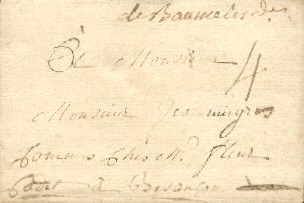 de Baume les De
A Monsieur
4
Monsieur Jeanmigros
Commis Chés Mr. fleur
a Besançon